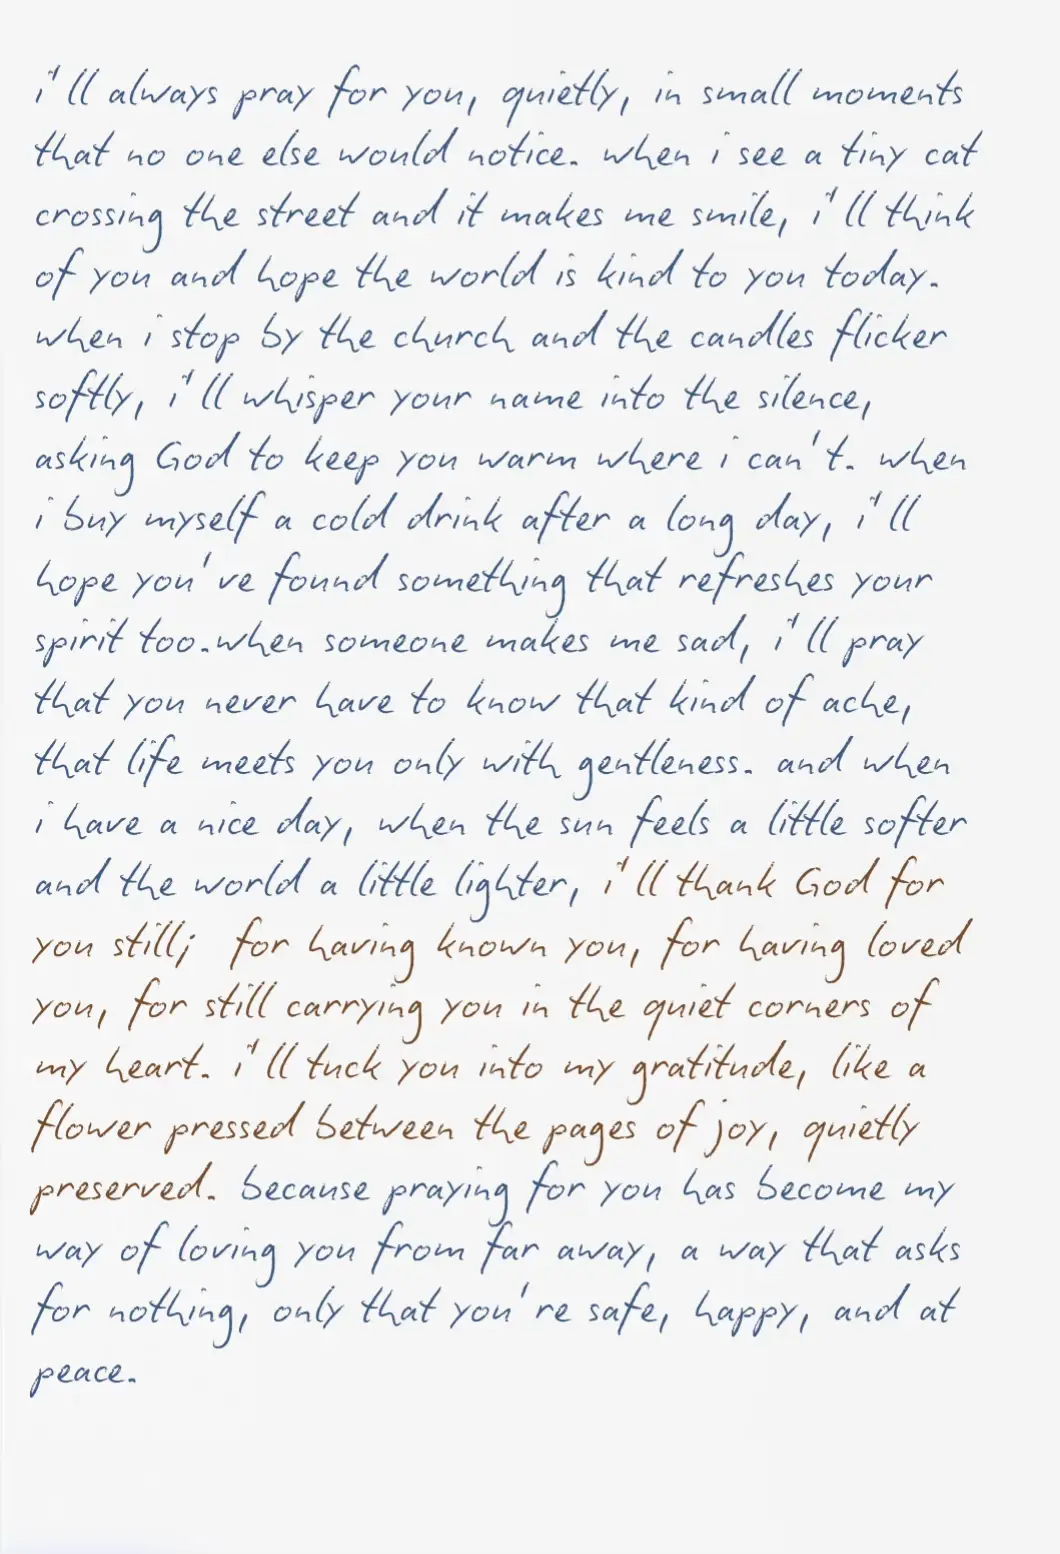 i'll always pray for you, quietly, in small moments
that no one else would notice. when i see a tiny cat
crossing the street and it makes me smile, i'll think
of you and hope the world is kind to you today.
when i stop by the church and the candles flicker
softly, i'll whisper your name into the silence,
asking God to keep you warm where i can't. when
i buy myself a cold drink after a long day, i'll
hope you've found something that refreshes your
spirit too.when someone makes me sad, i'll pray
that you never have to know that kind of ache,
that life meets you only with gentleness. and when
i have a nice day, when the sun feels a little softer
and the world a little lighter, i'll thank God for
you still; for having known you, for having loved
you, for still carrying you in the quiet corners of
my heart. i'll tuck you into my gratitude, like a
flower pressed between the pages of joy, quietly
preserved. because praying for you has become my
way of loving you from far away, a way that asks
for nothing, only that you're safe, happy, and at
peace.